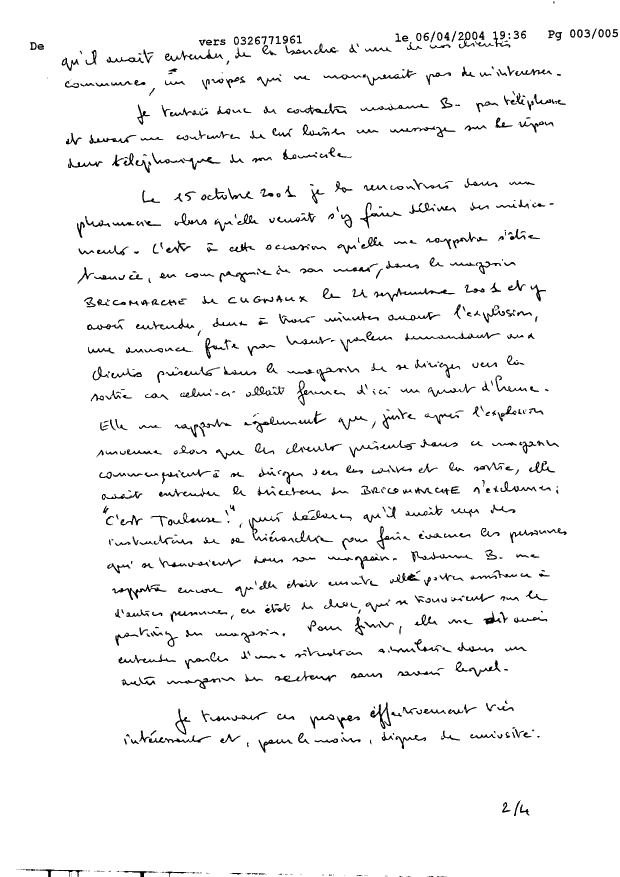 De vers 0326771961 le 06/04/2004 19:36 Pg 003/005
qu'il avait entendu, de la bouche d'une de nos clientes
communes, un propos qui ne manquerait pas de m'intéresser.
Je tentais donc de contacter madame B. par téléphone
et devais me contenter de lui laisser un message sur le répon
deur téléphonique de son domicile
Le 15 octobre 2001 je la rencontrais dans une
pharmacie alors qu'elle venait s'y faire délivrer des médica-
ments. C'est à cette occasion qu'elle me rapporta s'être
trouvée, en compagnie de son mari, dans le magasin
BRICOMARCHE de CUGNAUX le 21 septembre 2001 et y
avoir entendu, deux à trois minutes avant l'explosion,
une annonce faite par haut-parleur demandant aux
clients présents dans le magasin de se diriger vers la
sortie car celui-ci allait fermer d'ici un quart d'heure.
Elle me rapporta également que, juste après l'explosion
survenue alors que les clients présents dans ce magasin
commençaient à se diriger vers les caisses et la sortie, elle
avait entendu le directeur du BRICOMARCHE s'exclamer :
"C'est Toulouse !", puis déclarer qu'il avait reçu des
instructions de sa hiérarchie pour faire évacuer les personnes
qui se trouvaient dans son magasin. Madame B. me
rapporta encore qu'elle était ensuite allée porter assistance à
d'autres personnes, en état de choc, qui se trouvaient sur le
parking du magasin. Pour finir, elle me dit avoir
entendu parler d'une situation similaire dans un
autre magasin du secteur sans savoir lequel.
Je trouvais ces propos effectivement très
intéressants et, pour le moins, dignes de curiosité.
2/4